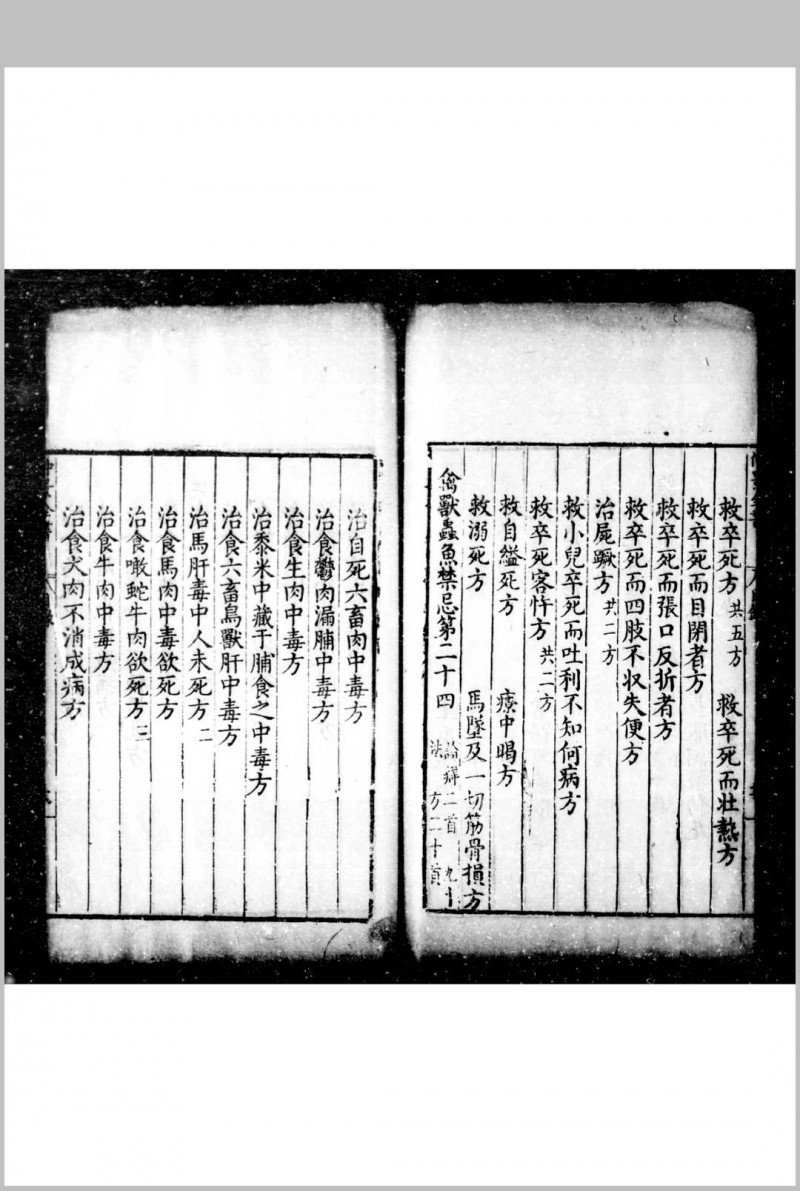 救卒死方 共五方 救卒死而壯熱方
救卒死而目閉者方
救卒死而張口反折者方
救卒死而四肢不収失便方
治屍蹶方 共二方
救小兒卒死而吐利不知何病方
救卒死客忤方 共二方
救自縊死方 療中暍方
救溺死方 馬墜及一切筋骨損方
禽獸蟲魚禁忌第二十四 論辯二首 九十法 方二十首
治自死六畜肉中毒方
治食鬱肉漏脯中毒方
治食生肉中毒方
治黍米中藏干脯食之中毒方
治食六畜鳥獸肝中毒方
治馬肝毒中人未死方 二
治食馬肉中毒欲死方
治食噉蛇牛肉欲死方 三
治食牛肉中毒方
治食犬肉不消成病方